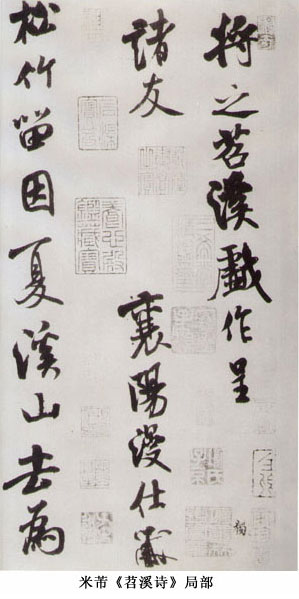 将之苕溪戏作呈
諸友
襄陽漫仕黻
松竹留因夏溪山去為
米芾《苕溪诗》局部